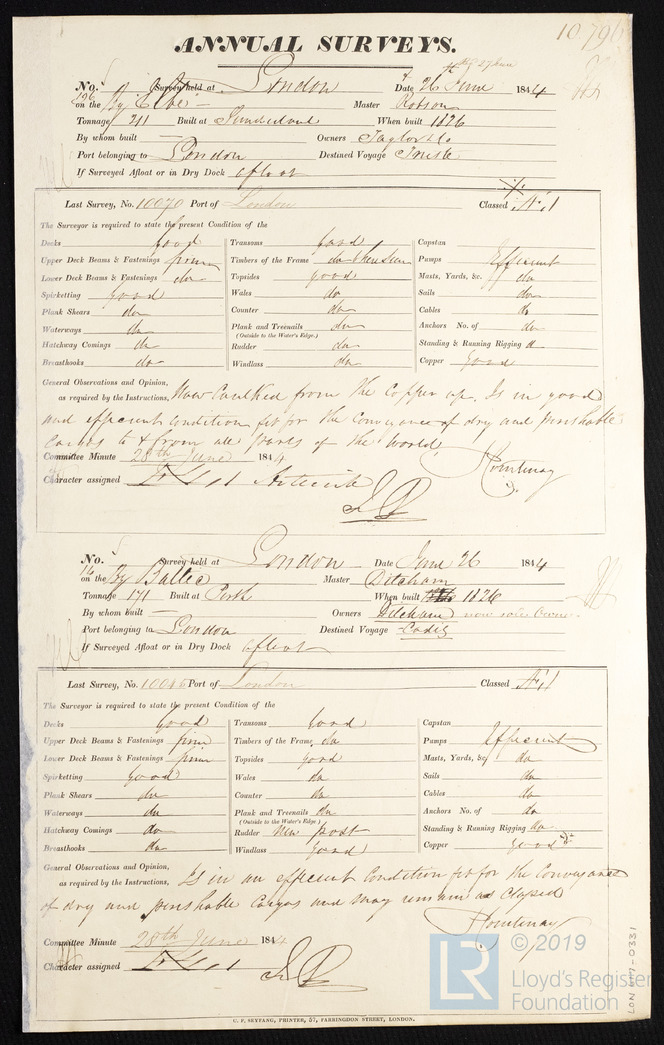 10,796
ANNUAL SURVEYS.
27 June
No. 126 Survey held at London Date 26 June 1844
on the Bg Elbe Master Robson
Tonnage 211 Built at Sunderland When built 1826
By whom built — Owners Taylor & Co
Port belonging to London Destined Voyage
If Surveyed Afloat or in Dry Dock afloat
Last Survey, No. 10070 Port of London Classed Æ 1
The Surveyor is required to state the present Condition of the
Decks Good Transoms good Capstan
Upper Deck Beams & Fastenings firm Timbers of the Frame do where seen Pumps Efficient
Lower Deck Beams & Fastenings do Topsides good Masts, Yards, &c. do
Spirketting Good Wales do Sails do
Plank Shears do Counter do Cables do
Waterways do Plank and Treenails do Anchors No. of do
(Outside to the Water's Edge.)
Hatchway Comings do Rudder do Standing & Running Rigging do
Breasthooks do Windlass do Copper Good
General Observations and Opinion,
as required by the Instructions, Now Caulked from the Copper up. Is in good
and efficient condition fit for the conveyance of dry and perishable
Cargos to & from all parts of the World
Committee Minute 28th June 1844 J Courtenay
Character assigned Æ 1
No. 14 Survey held at London Date June 26 1844
on the Bg Baltic Master Ditcham
Tonnage 171 Built at Perth When built 1826
By whom built — Owners Ditcham now sole Owner
Port belonging to London Destined Voyage Cadiz
If Surveyed Afloat or in Dry Dock afloat
Last Survey, No. 10045 Port of London Classed Æ 1
The Surveyor is required to state the present Condition of the
Decks Good Transoms Good Capstan
Upper Deck Beams & Fastenings firm Timbers of the Frame do Pumps Efficient
Lower Deck Beams & Fastenings firm Topsides good Masts, Yards, &c do
Spirketting Good Wales do Sails do
Plank Shears do Counter do Cables do
Waterways do Plank and Treenails do Anchors No. of do
(Outside to the Water's Edge.)
Hatchway Comings do Rudder New post Standing & Running Rigging do
Breasthooks do Windlass Good Copper Good
General Observations and Opinion,
as required by the Instructions, Is in an efficient Condition fit for the Conveyance
of dry and perishable Cargos and may remain as Classed
J Courtenay
Committee Minute 28th June 1844
Character assigned Æ 1
C. F. SEYFANG, PRINTER, 57, FARRINGDON STREET, LONDON.
LON 777-0331
LR © 2019
Lloyd's Register
Foundation